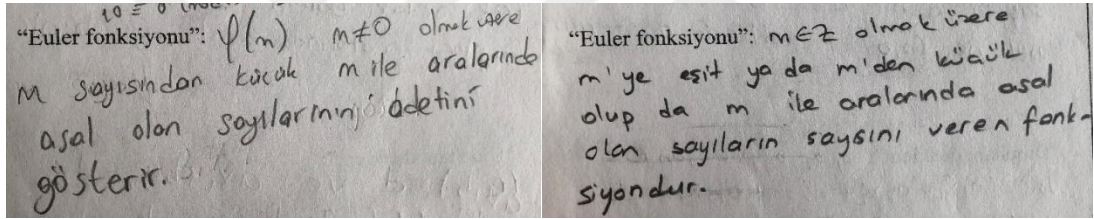 10 ≡ 0
"Euler fonksiyonu": φ(m) m≠0 olmak üzere
m sayısından küçük m ile aralarında
asal olan sayılarının adetini
gösterir.
"Euler fonksiyonu": m∈Z olmak üzere
m'ye eşit ya da m'den küçük
olup da m ile aralarında asal
olan sayıların saysını veren fonk-
siyondur.